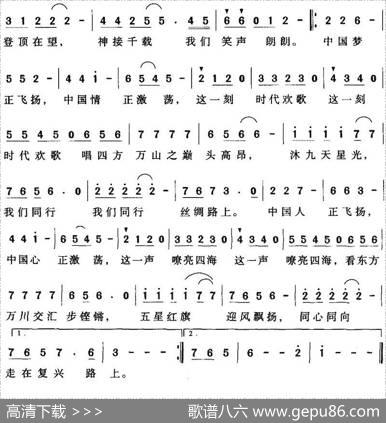 3 1 2 2 2 - | 4 4 2 5 . 4 5 | 6 6 0 1 2 - :| 2 2 6 -
登顶在望， 神接千载 我们 笑声 朗朗。 中国梦
5 2 - - | 4 4 i - | 6 5 4 5 - | 2 1 2 0 | 3 3 2 3 0 | 4 3 4 0
正飞扬， 中国情 正激 荡， 这一刻 时代欢歌 这一刻
5 5 4 5 0 6 5 6 | 7 7 7 7 | 6 5 6 . 0 | i i i i 7 7
时代欢歌 唱四方 万山之巅 头高昂， 沐九天星光，
7 6 5 6 . 0 | 2 2 2 2 2 - | 7 6 7 3 . 0 | 2 2 7 - | 6 6 3 -
我们同行 我们同行 丝绸路上。 中国人 正飞扬，
4 4 i - | 6 5 4 5 - | 2 1 2 0 | 3 3 2 3 0 | 4 3 4 0 | 5 5 4 5 0 6 5 6
中国心 正激荡， 这一声 嘹亮四海 这一声 嘹亮四海， 看东方
7 7 7 7 | 6 5 6 . 0 | i i i i 7 7 | 6 5 6 - | 2 2 2 2 2
万川交汇 步铿锵， 五星红旗 迎风飘扬， 同心同向
1. 2.
7 6 5 7 . 6 | 3 - - - :| 7 6 5 | 6 - - 2 | i - - - ||
走在复兴 路上。
高清下载 >>> 歌谱八六 www.gepu86.com